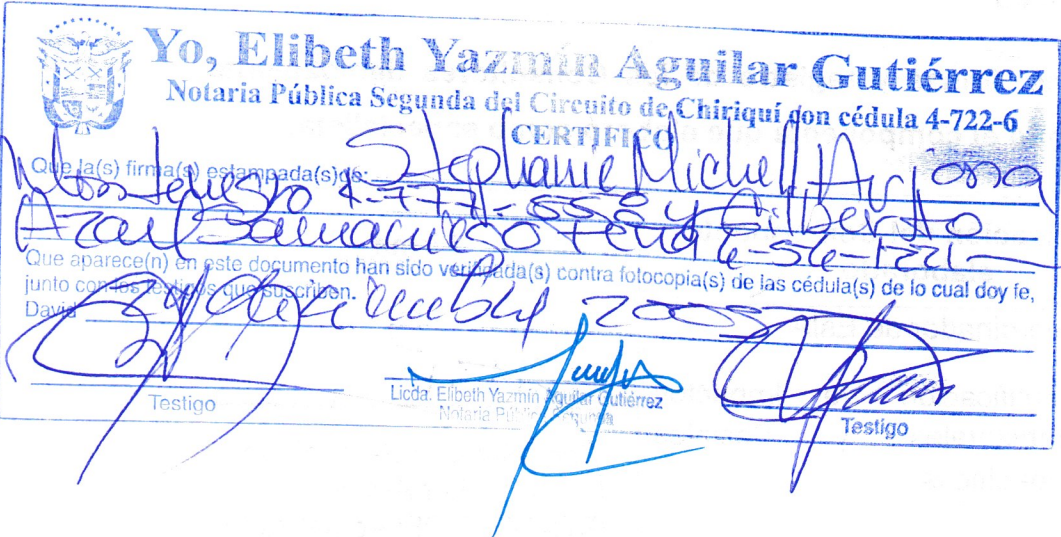 Yo, Elibeth Yazmín Aguilar Gutiérrez
Notaria Pública Segunda del Circuito de Chiriquí con cédula 4-722-6
CERTIFICO
Que la(s) firma(s) estampada(s) de: Stephanie Michell Arjona
Montenegro 4-777-558 y Gilberto
Azael Samaniego Peña 6-56-1221
Que aparece(n) en este documento han sido verificada(s) contra fotocopia(s) de las cédula(s) de lo cual doy fe,
junto con los testigos que suscriben.
David
Testigo
Licda. Elibeth Yazmín Aguilar Gutiérrez
Notaria Pública Segunda
Testigo